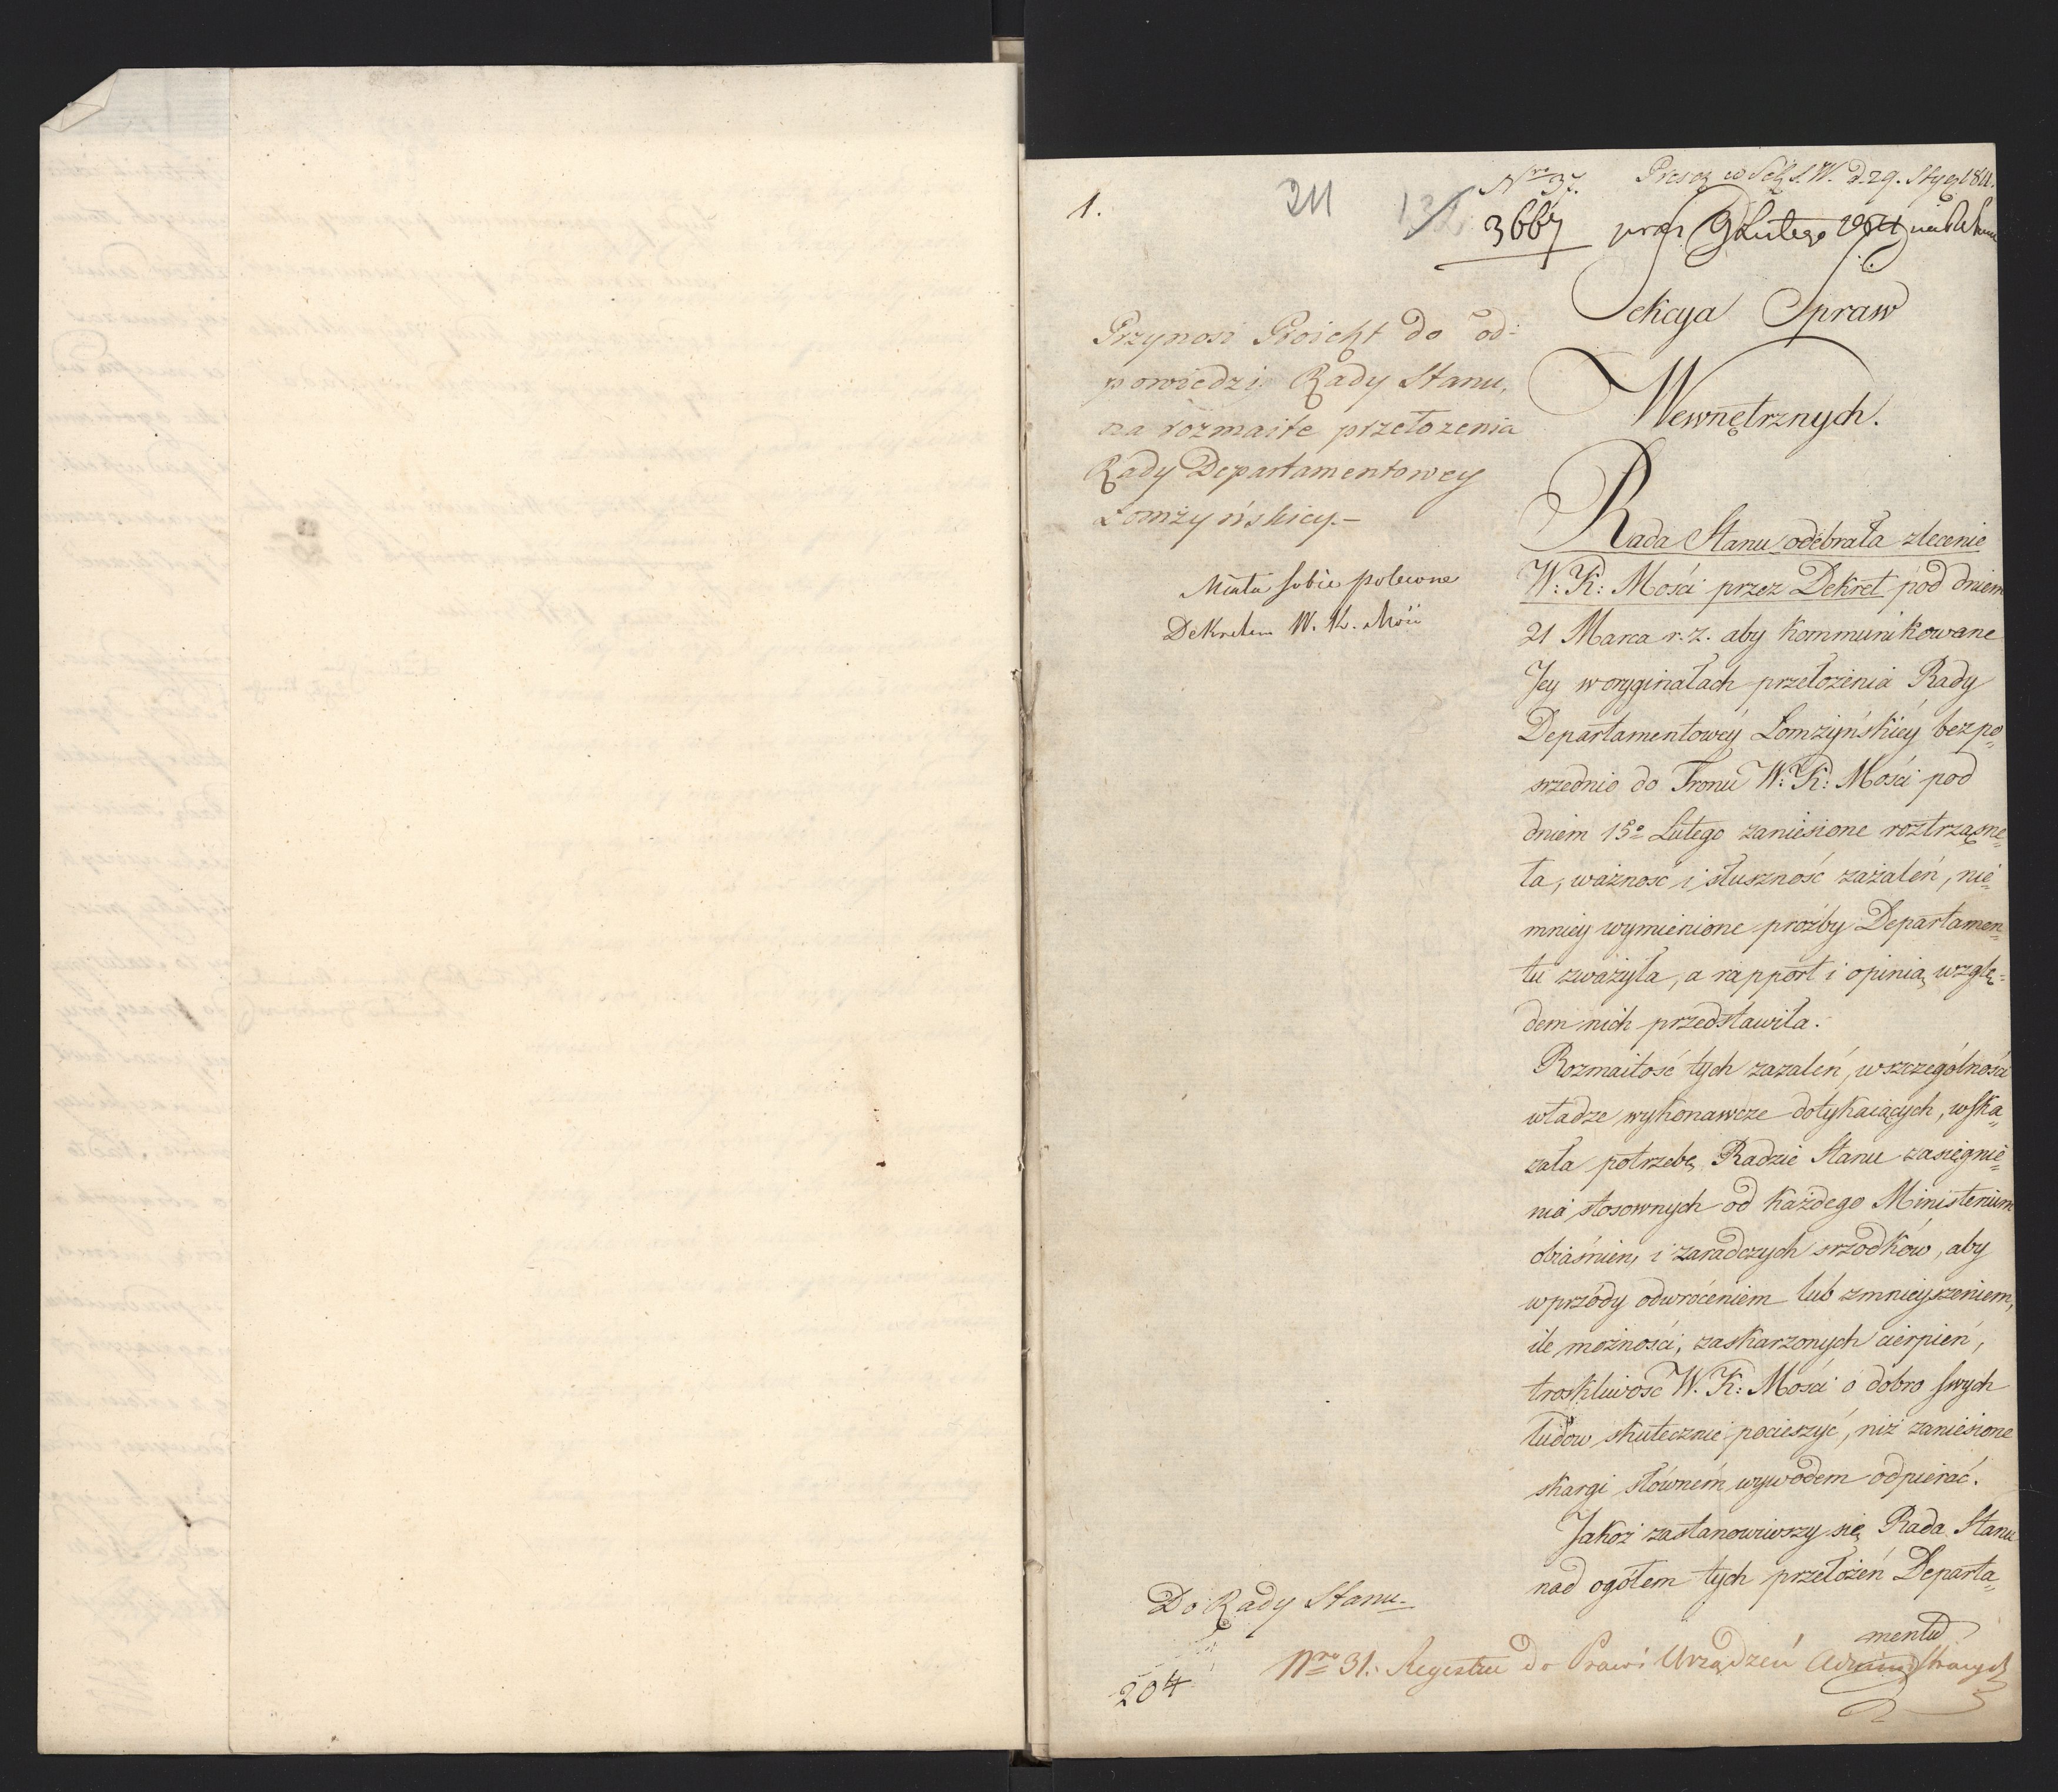 1.
211
Nro 37.
Presez w Sek S. W. d. 29. Stycz 1811.
3667
prez 9 Lutego 1811
Sekcya Spraw
Wewnętrznych.
Przynosi Proiekt do od-
powiedzi Rady Stanu,
na rozmaite przełozenia
Rady Departamentowey
Łomżyńskiey.-
Miała sobie polecone
Dekretem W. K. Mości
Rada Stanu odebrała zlecenie
W: K: Mości przez Dekret pod dniem
21 Marca r. z. aby kommunikowane
Jey w oryginałach przełożenia Rady
Departamentowéy Łomżyńskiéy bezpo„
srzednio do Tronu W: K: Mości pod
dniem 15o Lutego zaniesione roztrząsnę„
ła, ważność i słuszność zażaleń, nie„
mniey wymienione prożby Departamen„
tu zważyła, a rapport i opinią wzglę„
dem nich przedstawiła.
Rozmaitość tych zazaleń, w szczególności
władze wykonawcze dotykaiących, wska„
zała potrzebę Radzie Stanu zasięgnie„
nia stosownych od każdego Ministerium
obiaśnień, i zaradczych srzodków, aby
wprzódy odwróceniem lub zmnieyszeniem,
ile możności, zaskarzonych cierpień,
troskliwość W. K: Mości o dobro swych
ludów skutecznie pocieszyć, niż zaniesione
skargi słówném wywodem odpierać.
Jakoż zastanowiwszy się Rada Stanu
nad ogółem tych przełożeń Departa„
mentu
Do Rady Stanu.
Nro 31. Registru do Praw i Urządzeń Administracyi
204